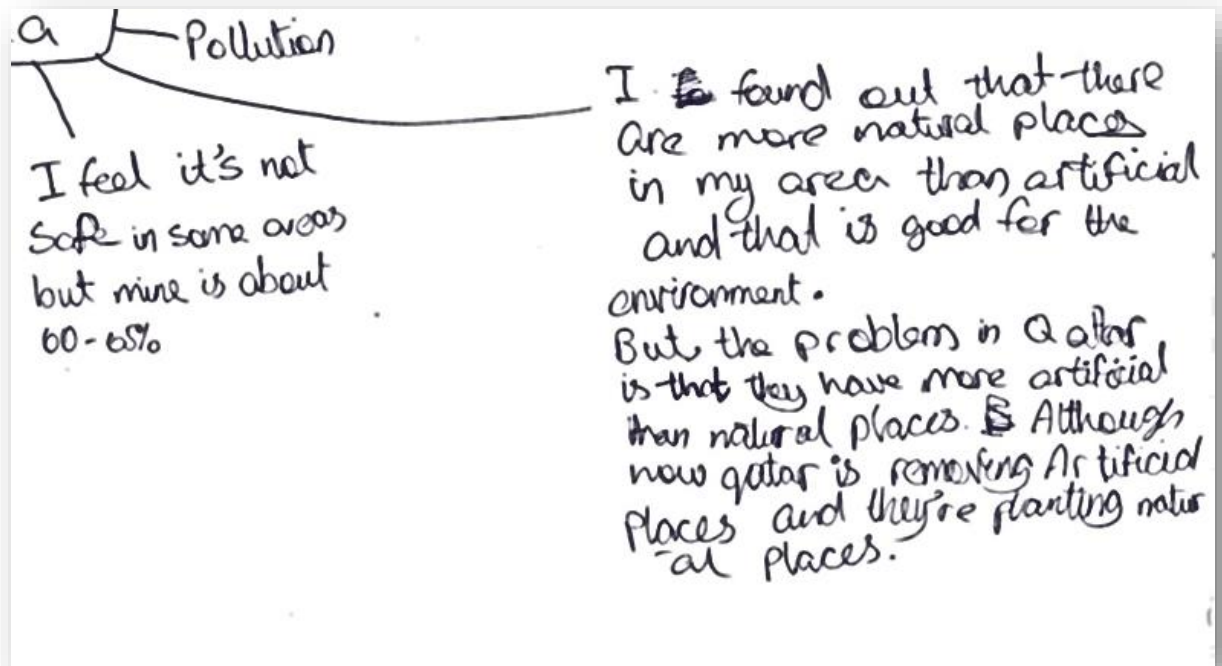 a
Pollution
I feel it's not
safe in some areas
but mine is about
60-65%
I found out that there
are more natural places
in my area than artificial
and that is good for the
environment.
But the problem in Qatar
is that they have more artificial
than natural places. Although
now qatar is removing Artificial
places and they're planting natur
-al places.